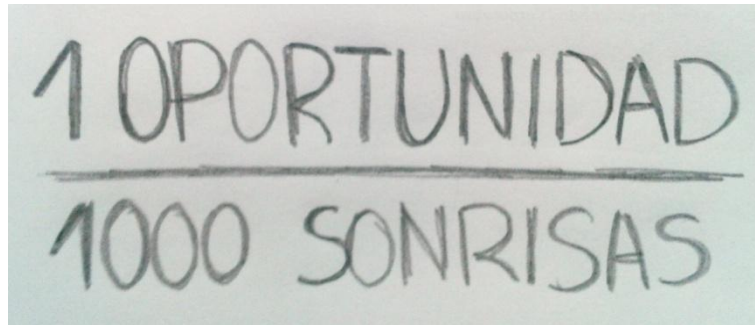 1 OPORTUNIDAD
1000 SONRISAS